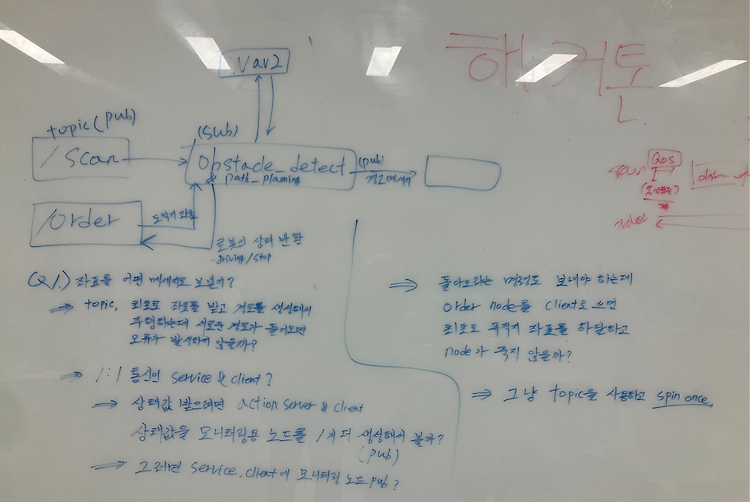 해커톤
Nav2
topic(pub)
/scan
(sub)
Obstacle_detect
path_planing
(pub)
경고메세지
/Order
도착지 좌표
로봇의 상태 반환
Scan
QoS
Q1.) 좌표를 어떤 메세지로 보낼까?
→ topic, 최초로 좌표를 받고 경로를 생성해서
주행하는데 새로운 경로가 들어오면
오류가 발생하지 않을까?
→ 1:1 통신인 service & client?
→ 상태값 받으려면 action server & client
상태값을 모니터링용 노드를 1개 더 생성해서 볼까?
(pub)
→ 그러면 service, client에 모니터링 노드 pub?
→ 돌아오라는 명령도 보내야 하는데
order node를 client로 쓰면
최초로 목적지 좌표를 하달하고
node가 죽지 않을까?
→ 그냥 topic을 사용하고 spin once